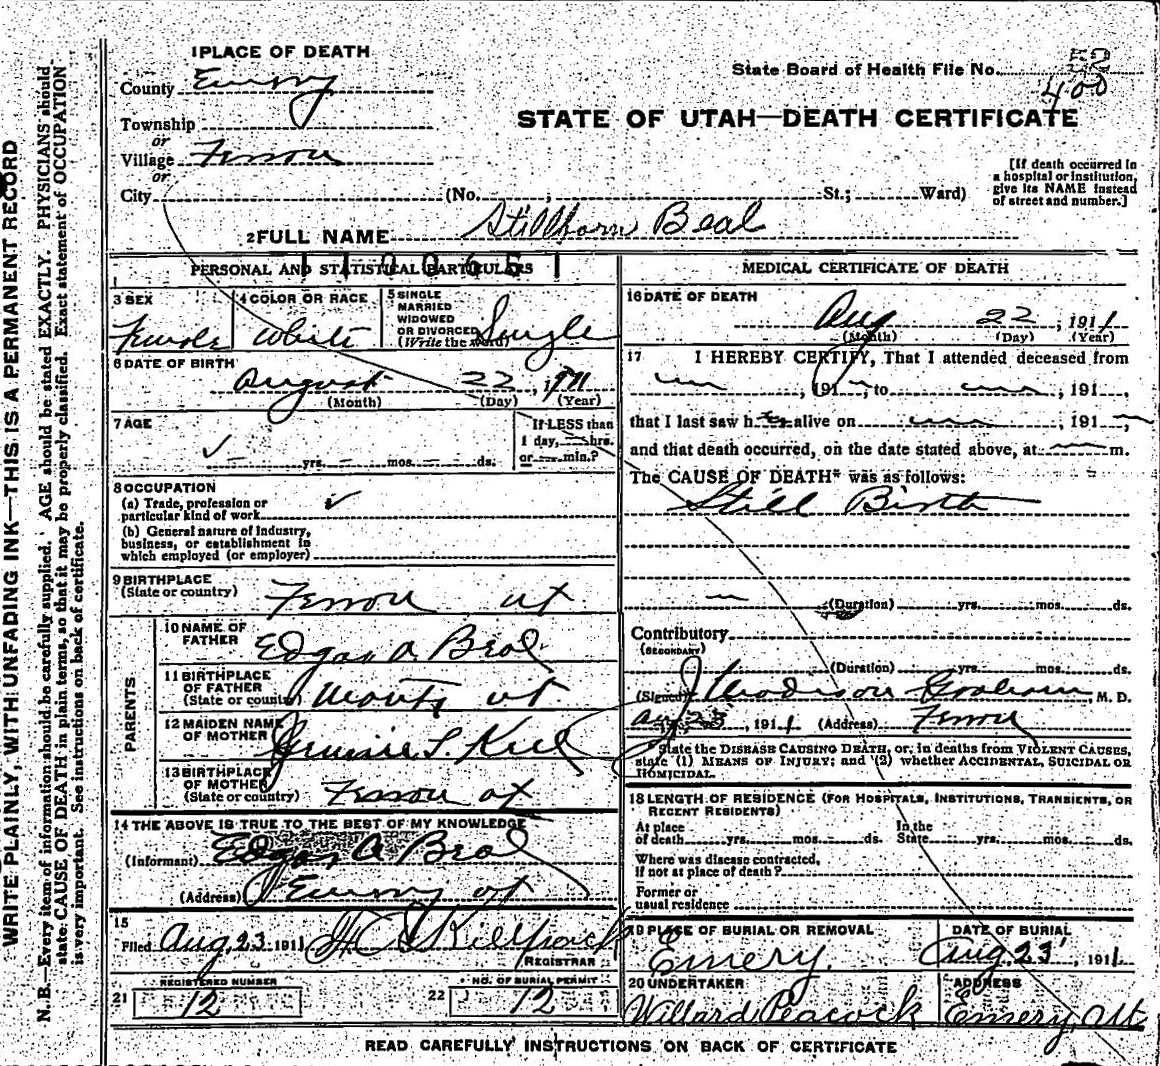 WRITE PLAINLY, WITH UNFADING INK—THIS IS A PERMANENT RECORD
N. B.—Every item of information should be carefully supplied. AGE should be stated EXACTLY. PHYSICIANS should
state CAUSE OF DEATH in plain terms, so that it may be properly classified. Exact statement of OCCUPATION
is very important. See instructions on back of certificate.
1 PLACE OF DEATH
County Emery
Township
or
Village Ferron
or
City (No. , St.; Ward)
State Board of Health File No. 52
400
STATE OF UTAH—DEATH CERTIFICATE
[If death occurred in
a hospital or institution,
give its NAME instead
of street and number.]
2 FULL NAME Stillborn Beal
PERSONAL AND STATISTICAL PARTICULARS
3 SEX Female
4 COLOR OR RACE White
5 SINGLE
MARRIED
WIDOWED
OR DIVORCED
(Write the word) Single
6 DATE OF BIRTH
August 22, 1911
(Month) (Day) (Year)
7 AGE
yrs. mos. ds.
If LESS than
1 day, hrs.
or min.?
8 OCCUPATION
(a) Trade, profession or
particular kind of work
(b) General nature of industry,
business, or establishment in
which employed (or employer)
9 BIRTHPLACE
(State or country) Ferron ut
PARENTS
10 NAME OF
FATHER Edgar A Beal
11 BIRTHPLACE
OF FATHER
(State or country) Manti ut
12 MAIDEN NAME
OF MOTHER
13 BIRTHPLACE
OF MOTHER
(State or country) Ferron ut
14 THE ABOVE IS TRUE TO THE BEST OF MY KNOWLEDGE
(Informant) Edgar A Beal
(Address) Emery ut
15
Filed Aug. 23 1911 Killpack
REGISTRAR
REGISTERED NUMBER
21 12
NO. OF BURIAL PERMIT
22 12
MEDICAL CERTIFICATE OF DEATH
16 DATE OF DEATH
Aug 22, 1911
(Month) (Day) (Year)
17 I HEREBY CERTIFY, That I attended deceased from
, 191 to , 191 ,
that I last saw h alive on , 191 ,
and that death occurred, on the date stated above, at m.
The CAUSE OF DEATH* was as follows:
Still Birth
(Duration) yrs. mos. ds.
Contributory
(SECONDARY)
(Duration) yrs. mos. ds.
(Signed) J Madison Graham, M. D.
Aug 23, 1911 (Address) Ferron
*State the DISEASE CAUSING DEATH, or, in deaths from VIOLENT CAUSES,
state (1) MEANS OF INJURY; and (2) whether ACCIDENTAL, SUICIDAL OR
HOMICIDAL.
18 LENGTH OF RESIDENCE (FOR HOSPITALS, INSTITUTIONS, TRANSIENTS, OR
RECENT RESIDENTS)
At place In the
of death yrs. mos. ds. State yrs. mos. ds.
Where was disease contracted,
if not at place of death?
Former or
usual residence
19 PLACE OF BURIAL OR REMOVAL
Emery.
DATE OF BURIAL
Aug. 23, 1911
20 UNDERTAKER
Willard Peacock
ADDRESS
Emery, Ut
READ CAREFULLY INSTRUCTIONS ON BACK OF CERTIFICATE